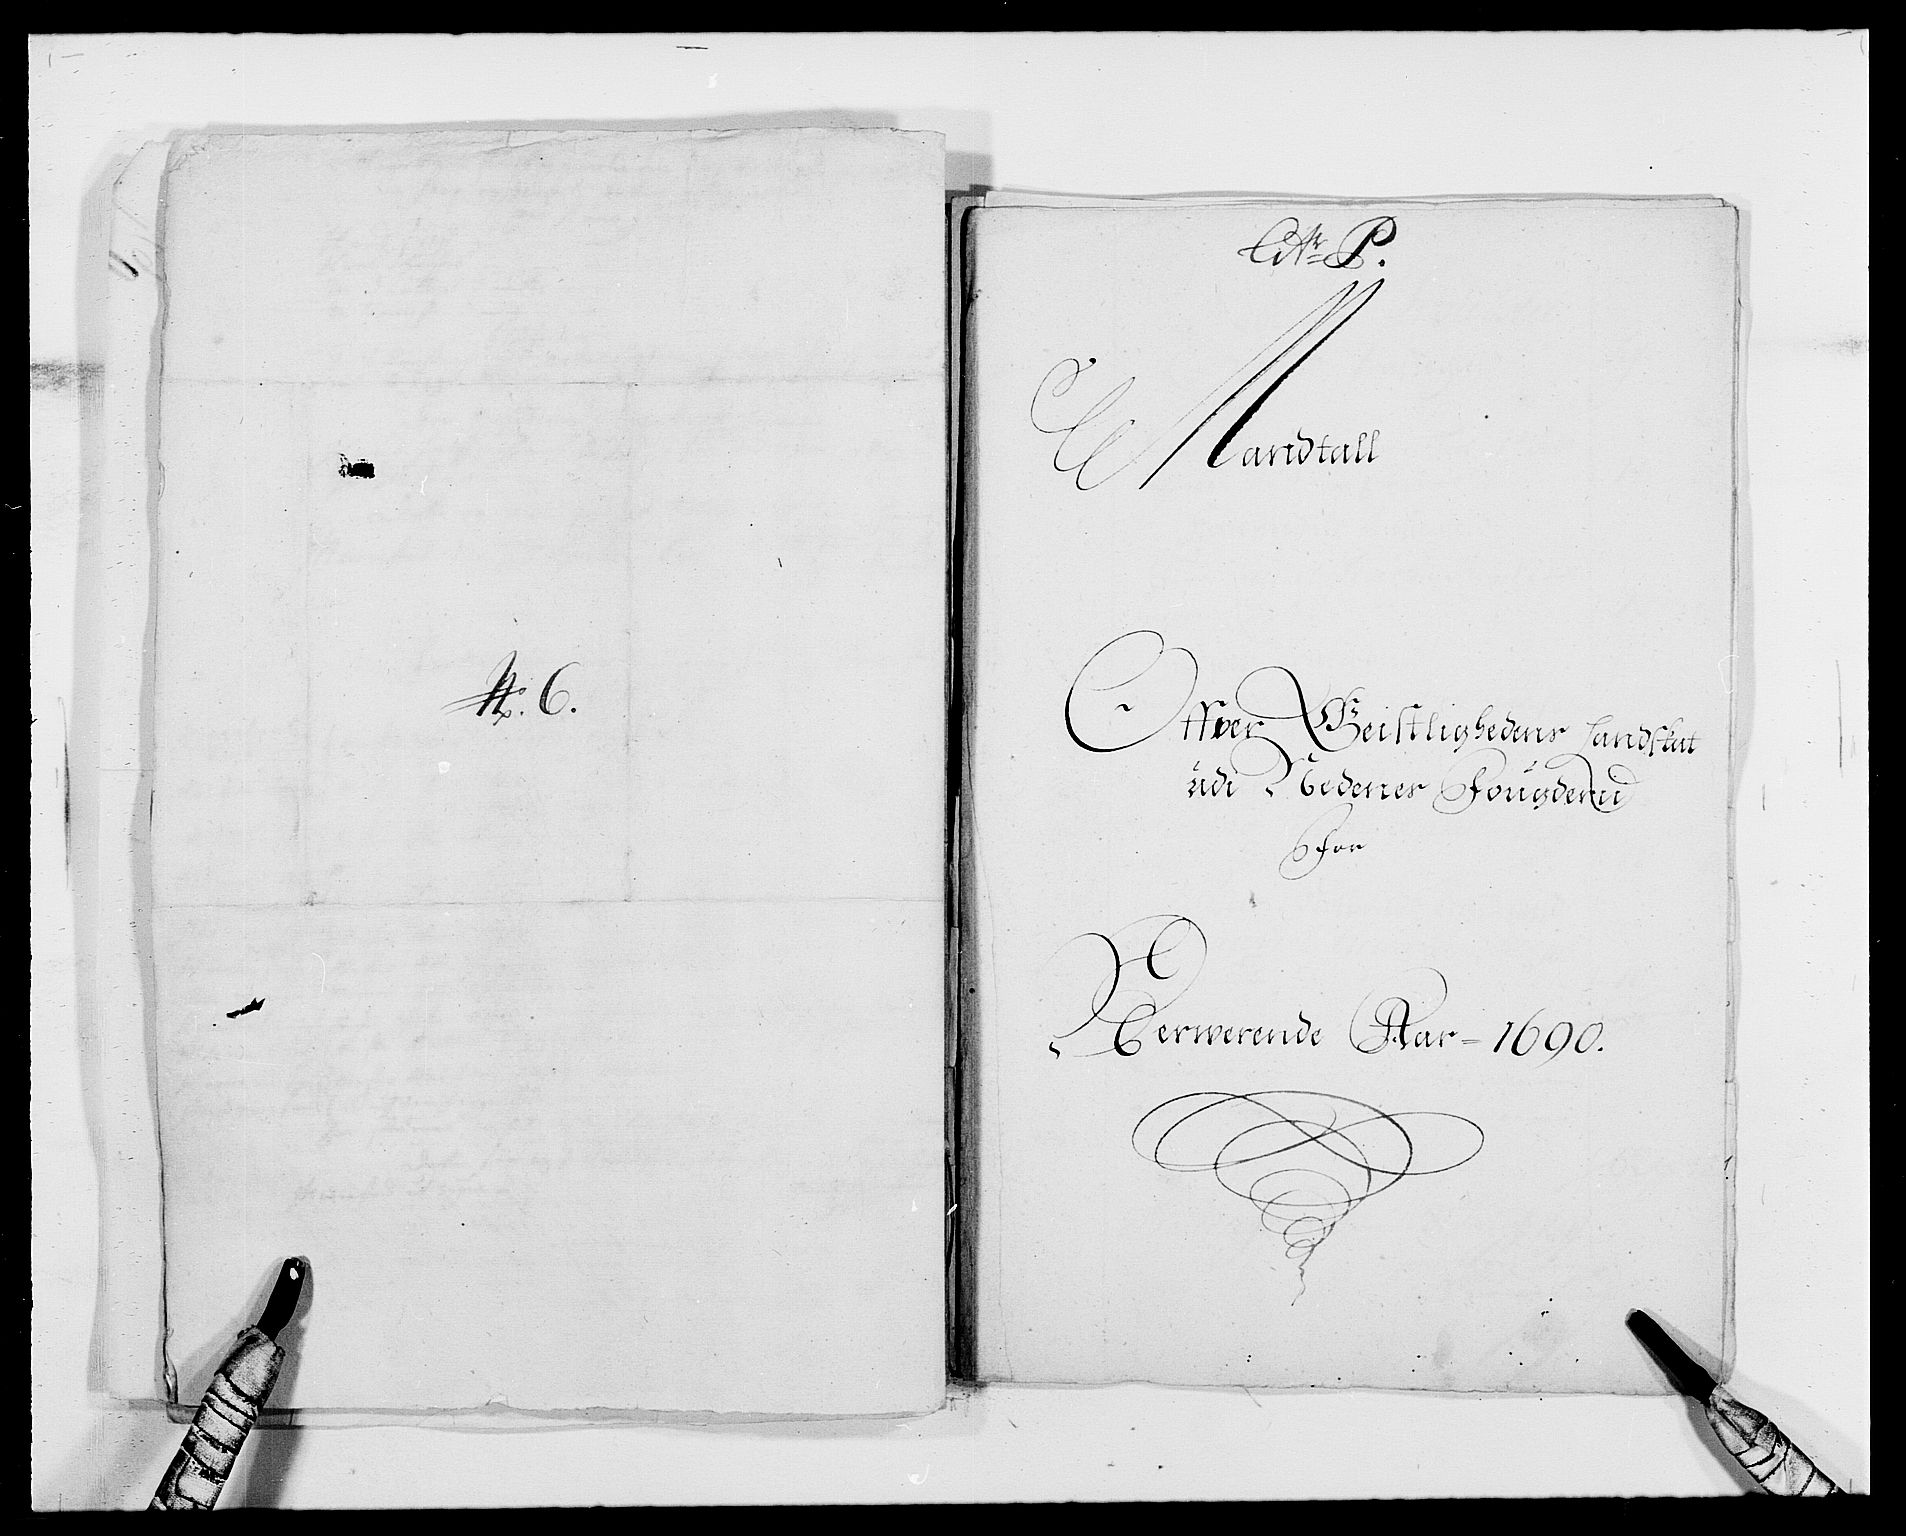 N: 6.
Litr P.
Mandtall
Offver Geistlighedens Landskat
udi Nedenes Fougderii
For
Nerwerende Aar = 1690.